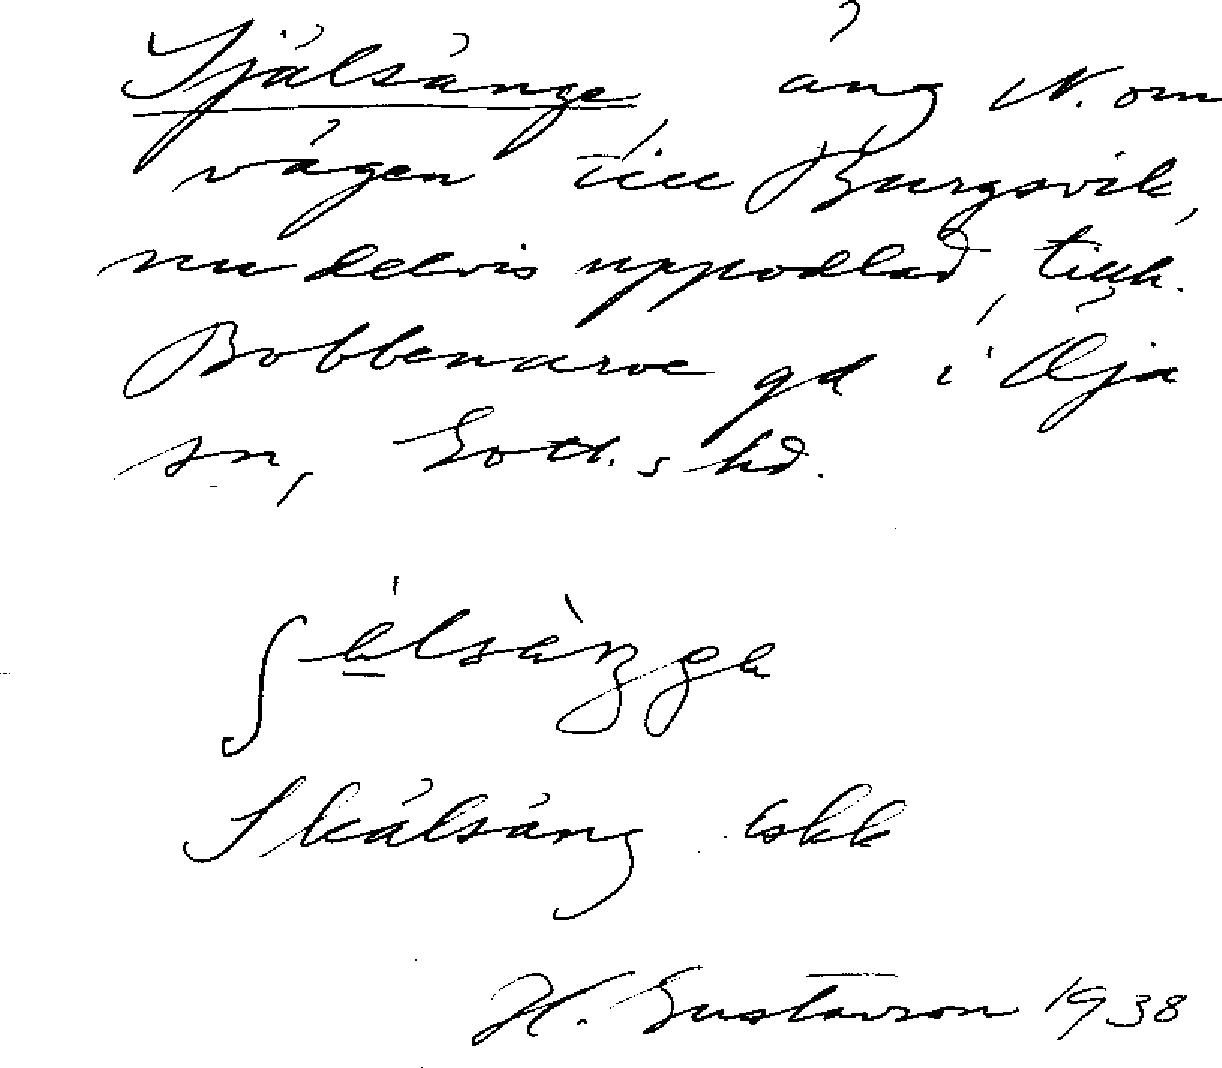 Själsänge, äng N. om
vägen till Burgsvik,
nu delvis uppodlad, tillh.
Bobbenarve gd i Öja
sn, Gotl. s hd.
ʃälsàŋgə
Skälsäng lskk
H. Gustavson 1938